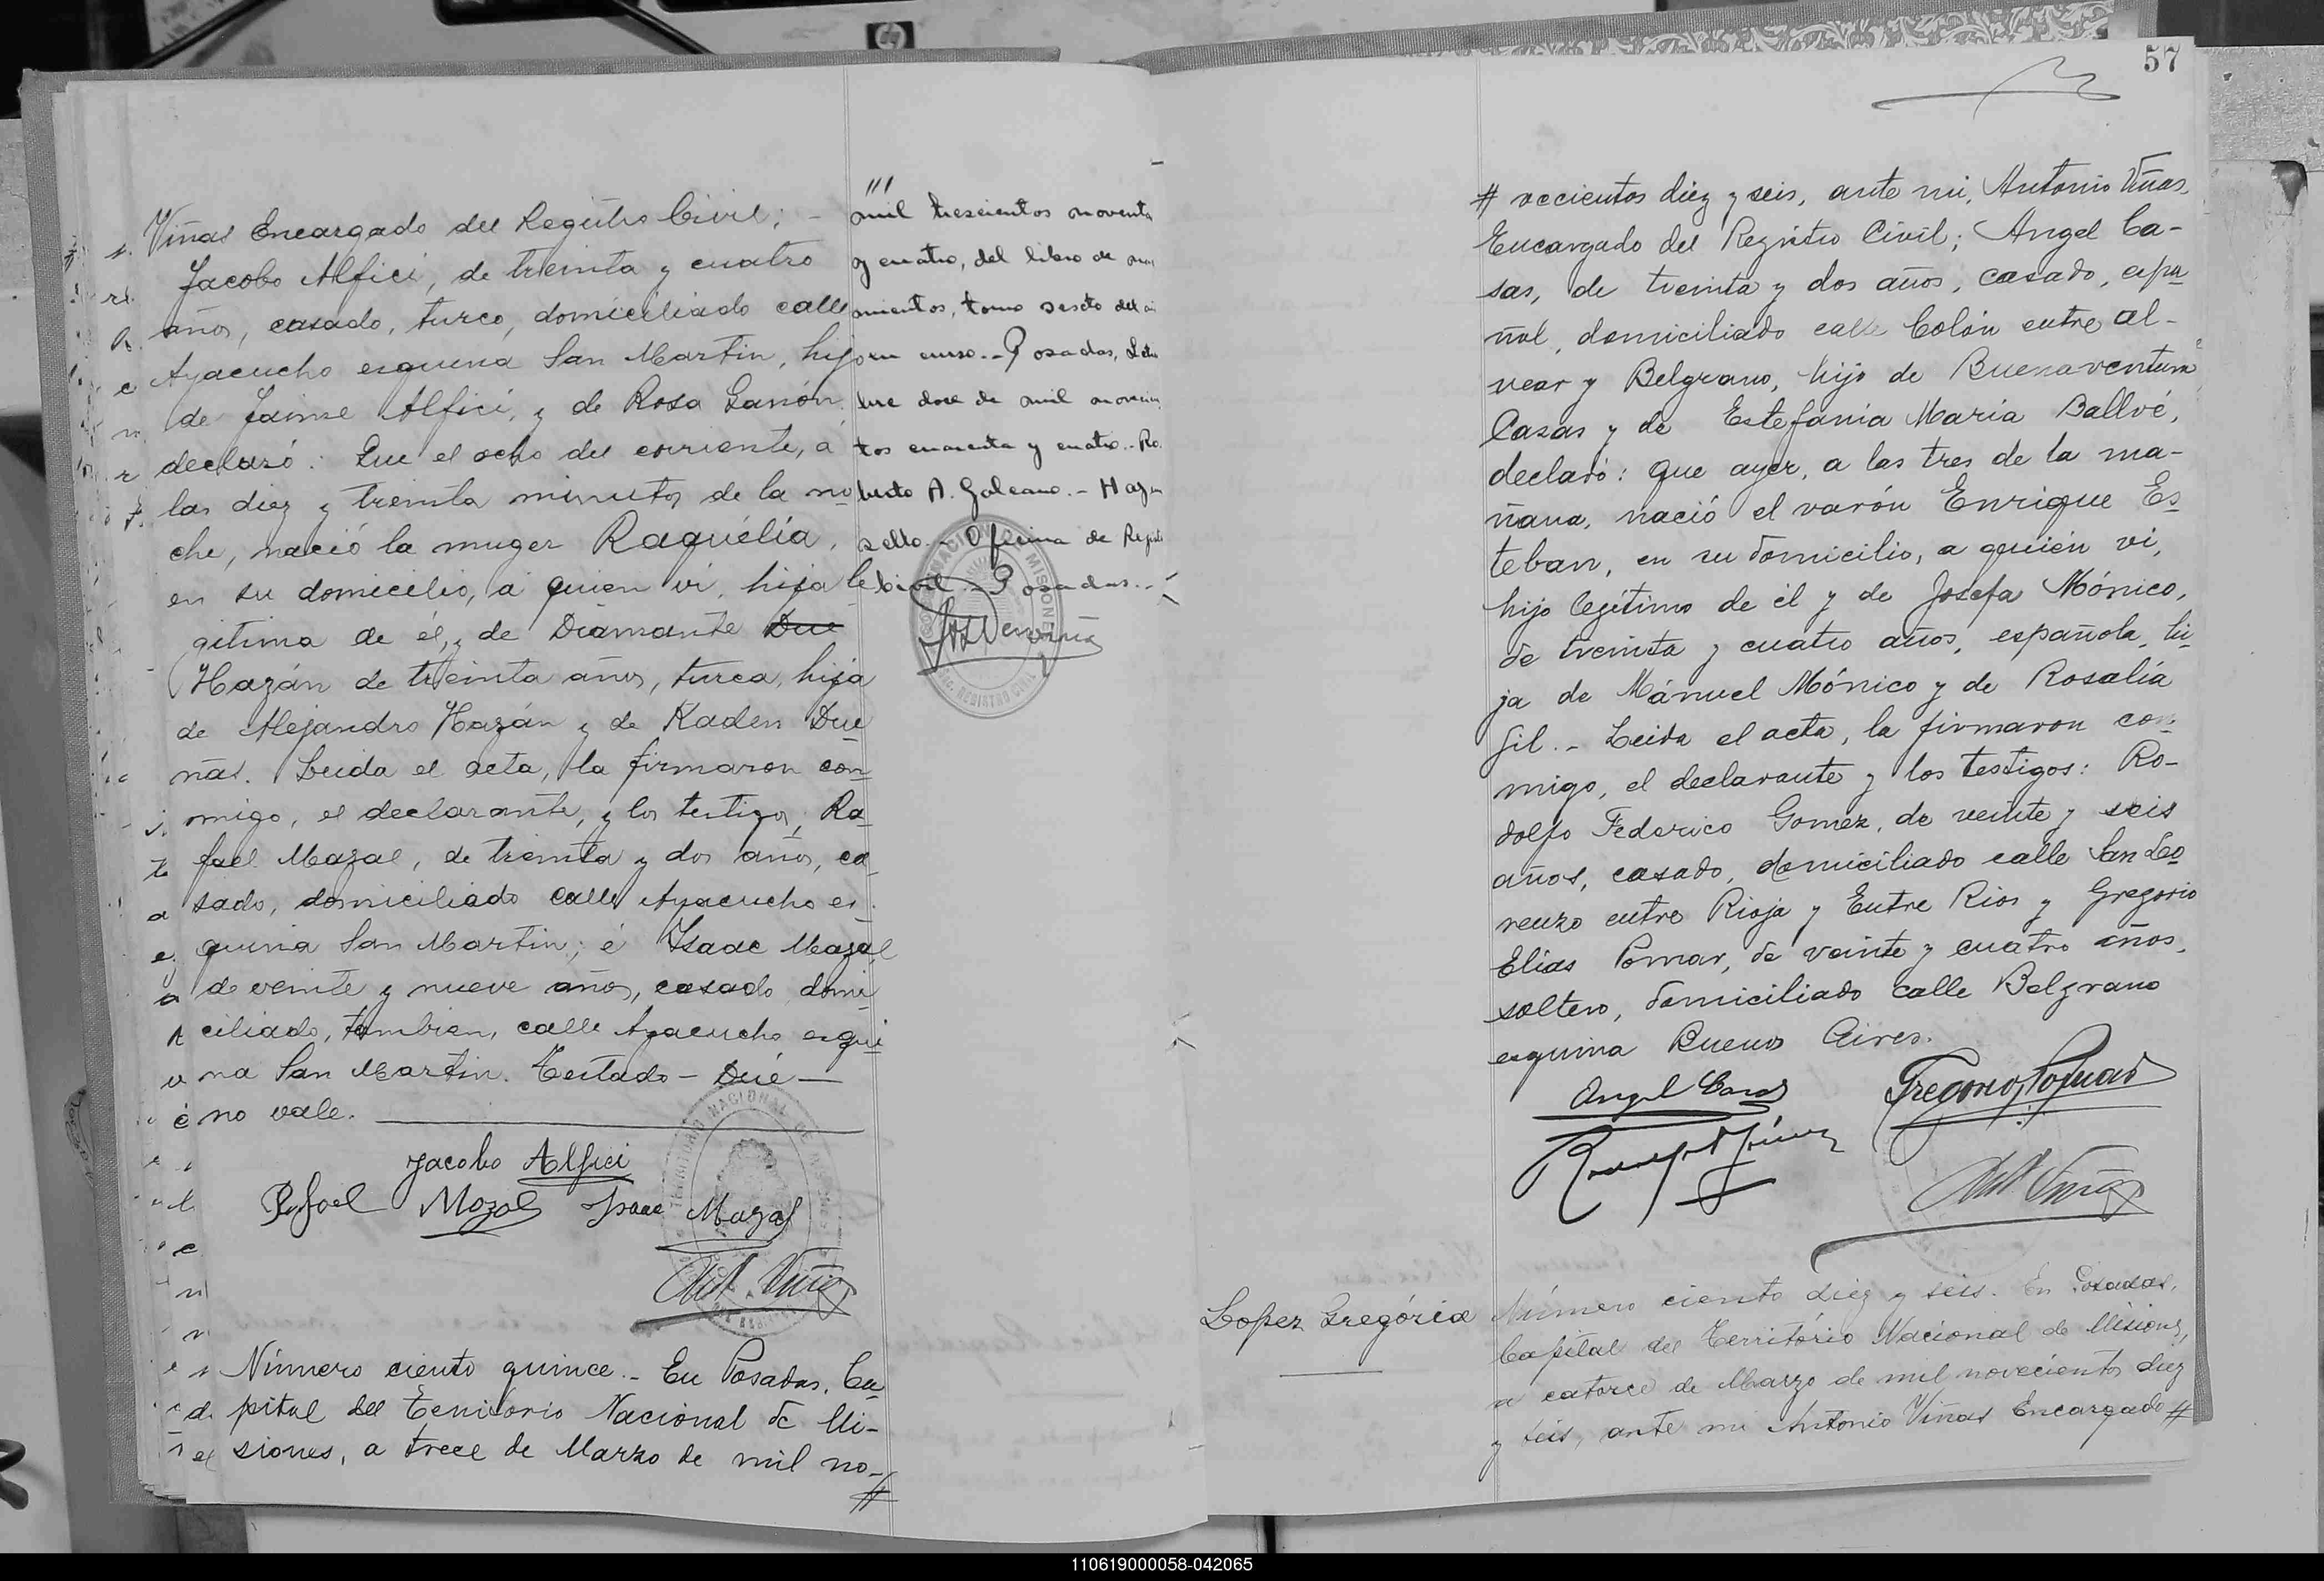 Viñas Encargado del Registro Civil; -
Jacobo Alfici, de treinta y cuatro
años, casado, turco, domiciliado calle
Ayacucho esquina San Martin, hijo
de Jaime Alfici, y de Rosa Ganón
declaró: Que el ocho del corriente, á
las diez y treinta minutos de la no
che, nació la muger Raquélia,
en su domicilio, á quien vi, hija le
gitima de él, y de Diamante Due
Hazán de treinta años, turca, hija
de Alejandro Hazán y de Kaden Due
ñas. Leida el acta, la firmaron con
migo, el declarante, y los testigos, Ra
fael Mazal, de treinta y dos años, ca
sado, domiciliado calle Ayacucho es
quina San Martin; é Isaac Mazal
de veinte y nueve años, casado domi
ciliado, tambien, calle Ayacucho esqui
na San Martin. Testado - Due -
no vale.
Jacobo Alfici
Rafael Mazal Isaac Mazal
Ant. Viñas
Número ciento quince.- En Posadas, Ca
pital del Territorio Nacional de Mi-
siones, a trece de Marzo de mil no-
#
mil trescientos noventa
y cuatro, del libro de
mientos, tomo sesto del
en curso.- Posadas,
bre doce de mil novecien
tos cuarenta y cuatro.- Ro
berto A. Galeano.- Hay un
sello.- Oficina de Registro
Civil.- Posadas.-
57
# vecientos diez y seis, ante mi, Antonio Viñas,
Encargado del Registro Civil; Angel Ca-
sas, de treinta y dos años, casado, espa
ñol, domiciliado calle Colón entre Al-
vear y Belgrano, hijo de Buenaventura
Casas y de Estefanía Maria Ballvé,
declaró: que ayer, a las tres de la ma-
ñana, nació el varón Enrique Es
teban, en su domicilio, a quien vi,
hijo legítimo de él y de Josefa Mónico,
de treinta y cuatro años, española, hi-
ja de Mánuel Mónico y de Rosalía
Gil.- Leida el acta, la firmaron con-
migo, el declarante y los testigos: Ro-
dolfo Federico Gomez, de veinte y seis
años, casado, domiciliado calle San Lo
renzo entre Rioja y Entre Rios y Gregorio
Elias Pomar, de veinte y cuatro años,
soltero, domiciliado calle Belgrano
esquina Buenos Aires.
Angel Casas Gregorio Pomar
Rodolfo F. Gómez
Ant. Viñas
Lopez Gregória
Número ciento diez y seis. En Posadas,
Capital del Território Nacional de Misiones,
a catorce de Marzo de mil novecientos diez
y seis, ante mi Antonio Viñas Encargado #
110619000058-042065